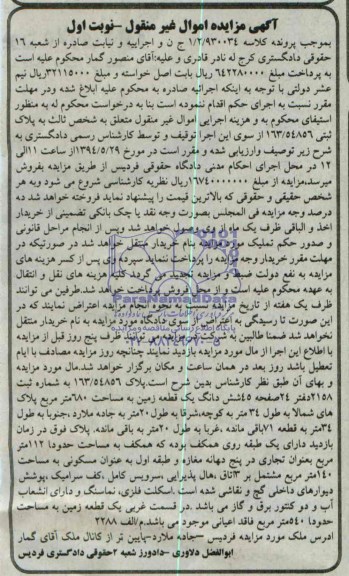 آگهی مزایده اموال غیر منقول -نوبت اول
بموجب پرونده کلاسه ۱/۲/۹۳۰۰۳۴ ج ن و اجراییه و نیابت صادره از شعبه ۱۶
حقوقی دادگستری کرج له نادر قادری و علیه:آقای منصور گمار محکوم علیه است
به پرداخت مبلغ ۶۴۲۲۸۰۰۰۰ ریال بابت اصل خواسته و مبلغ ۳۲۱۱۵۰۰۰ریال نیم
عشر دولتی با توجه به اینکه اجرائیه صادره به محکوم علیه ابلاغ شده ودر مهلت
مقرر نسبت به اجرای حکم اقدام ننموده است بنا به درخواست محکوم له به منظور
استیفای محکوم به و هزینه اجرایی اموال غیر منقول متعلق به شخص ثالث به پلاک
ثبتی ۱۶۳/۵۴۸۵۶ از سوی این اجرا توقیف و توسط کارشناس رسمی دادگستری به
شرح زیر توصیف وارزیابی شده و مقرر است در مورخ ۱۳۹۴/۵/۲۹از ساعت ۱۱الی
۱۲ در محل اجرای احکام مدنی دادگاه حقوقی فردیس از طریق مزایده بفروش
میرسد.مزایده از مبلغ ۱۶۷۴۰۰۰۰۰۰۰ریال نظریه کارشناسی شروع می شود وبه هر
شخص حقیقی و حقوقی که بالاترین قیمت را پیشنهاد نماید فروخته خواهد شد ده
درصد وجه مزایده فی المجلس بصورت وجه نقد یا چک بانکی تضمینی از خریدار
اخذ و الباقی ظرف یک ماه از وی وصول خواهد شد وپس از انجام مراحل قانونی
و صدور حکم تملیک مورد مزایده بنام خریدار منتقل خواهد شد در صورتیکه در
مهلت مقرر خریدار وجه مزایده را پرداخت ننماید سپرده وی پس از کسر هزینه های
مزایده به نفع دولت ضبط و مزایده تجدید می گردد کلیه هزینه های نقل و انتقال
به عهده محکوم علیه است و از محل فروش برداخت خواهد شد.طرفین می توانند
ظرف یک هفته از تاریخ مزایده نسبت به نحوه انجام مزایده اعتراض نمایند که در
این صورت تا رسیدگی به اعتراض در دادگاه مورد مزایده به نام خریدار منتقل
نخواهد شد ضمنا طالبین به شرکت در مزایده می توانند ظرف پنج روز قبل از مزایده
با اطلاع این اجرا از مال مورد مزایده بازدید نمایند چنانچه روز مزایده مصادف با ایام
تعطیل باشد روز بعد در همان ساعت و مکان برگزار خواهد شد.مال مورد مزایده
و بهای آن طبق نظر کارشناس بدین شرح است.پلاک ۱۶۳/۵۴۸۵۶ به شماره ثبت
۲۱۵۸دفتر ۲۴صفحه ۴۵شش دانگ یک قطعه زمین به مساحت ۶۸۰متر مربع پلاک
های شمالا به طول ۳۴ متر به کوچه،شرقا به طول ۲۰متر به جاده ملارد ،جنوبا به طول
۳۴متر به قطعه ۷۱باقی مانده ،غربا به طول ۲۰متر به باقی مانده. پلاک فوق در زمان
بازدید دارای یک طبقه روی همکف بوده که همکف به مساحت حدودا ۱۱۲متر
مربع بعنوان تجاری در پنج دهانه مغازه و طبقه اول به عنوان مسکونی به مساحت
۱۴۰متر مربع مشتمل بر ۳اتاق ،هال ،پذیرایی ،سرویس کامل ،کف سرامیک ،پوشش
دیوارهای داخلی گچ و نقاشی شده است .اسکلت فلزی، نماسنگ و دارای انشعاب
آب و دو کنتور برق و گاز می باشد .در قسمت غربی یک قطعه زمین به مساحت
حدودا ۵۴۰متر مربع فاقد اعیانی موجود می باشد.م/الف ۲۲۸۸
ادرس ملک مورد مزایده فردیس -جاده ملارد-پایین تر از کانال ملک آقای گمار
ابوالفضل دلاوری -دادورز شعبه ۲حقوقی دادگستری فردیس
ParaNamadData
پایگاه اطلاع رسانی مناقصه و مزایده